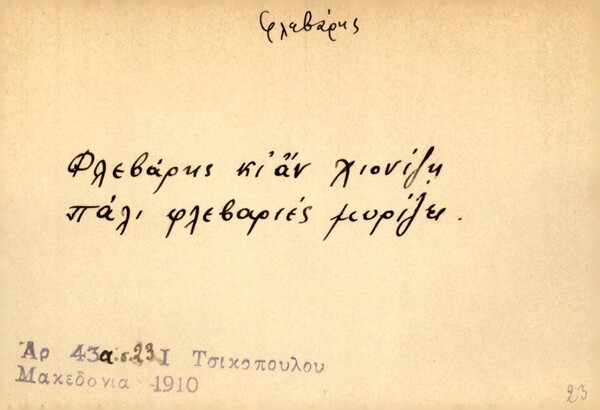 Φλεβάρης
Φλεβάρης κι' ἂν χιονίζῃ
πάλι φλεβαριές μυρίζει.
Ἀρ 43α σ. 23 Ι Τσικοπουλου
Μακεδονια 1910
23